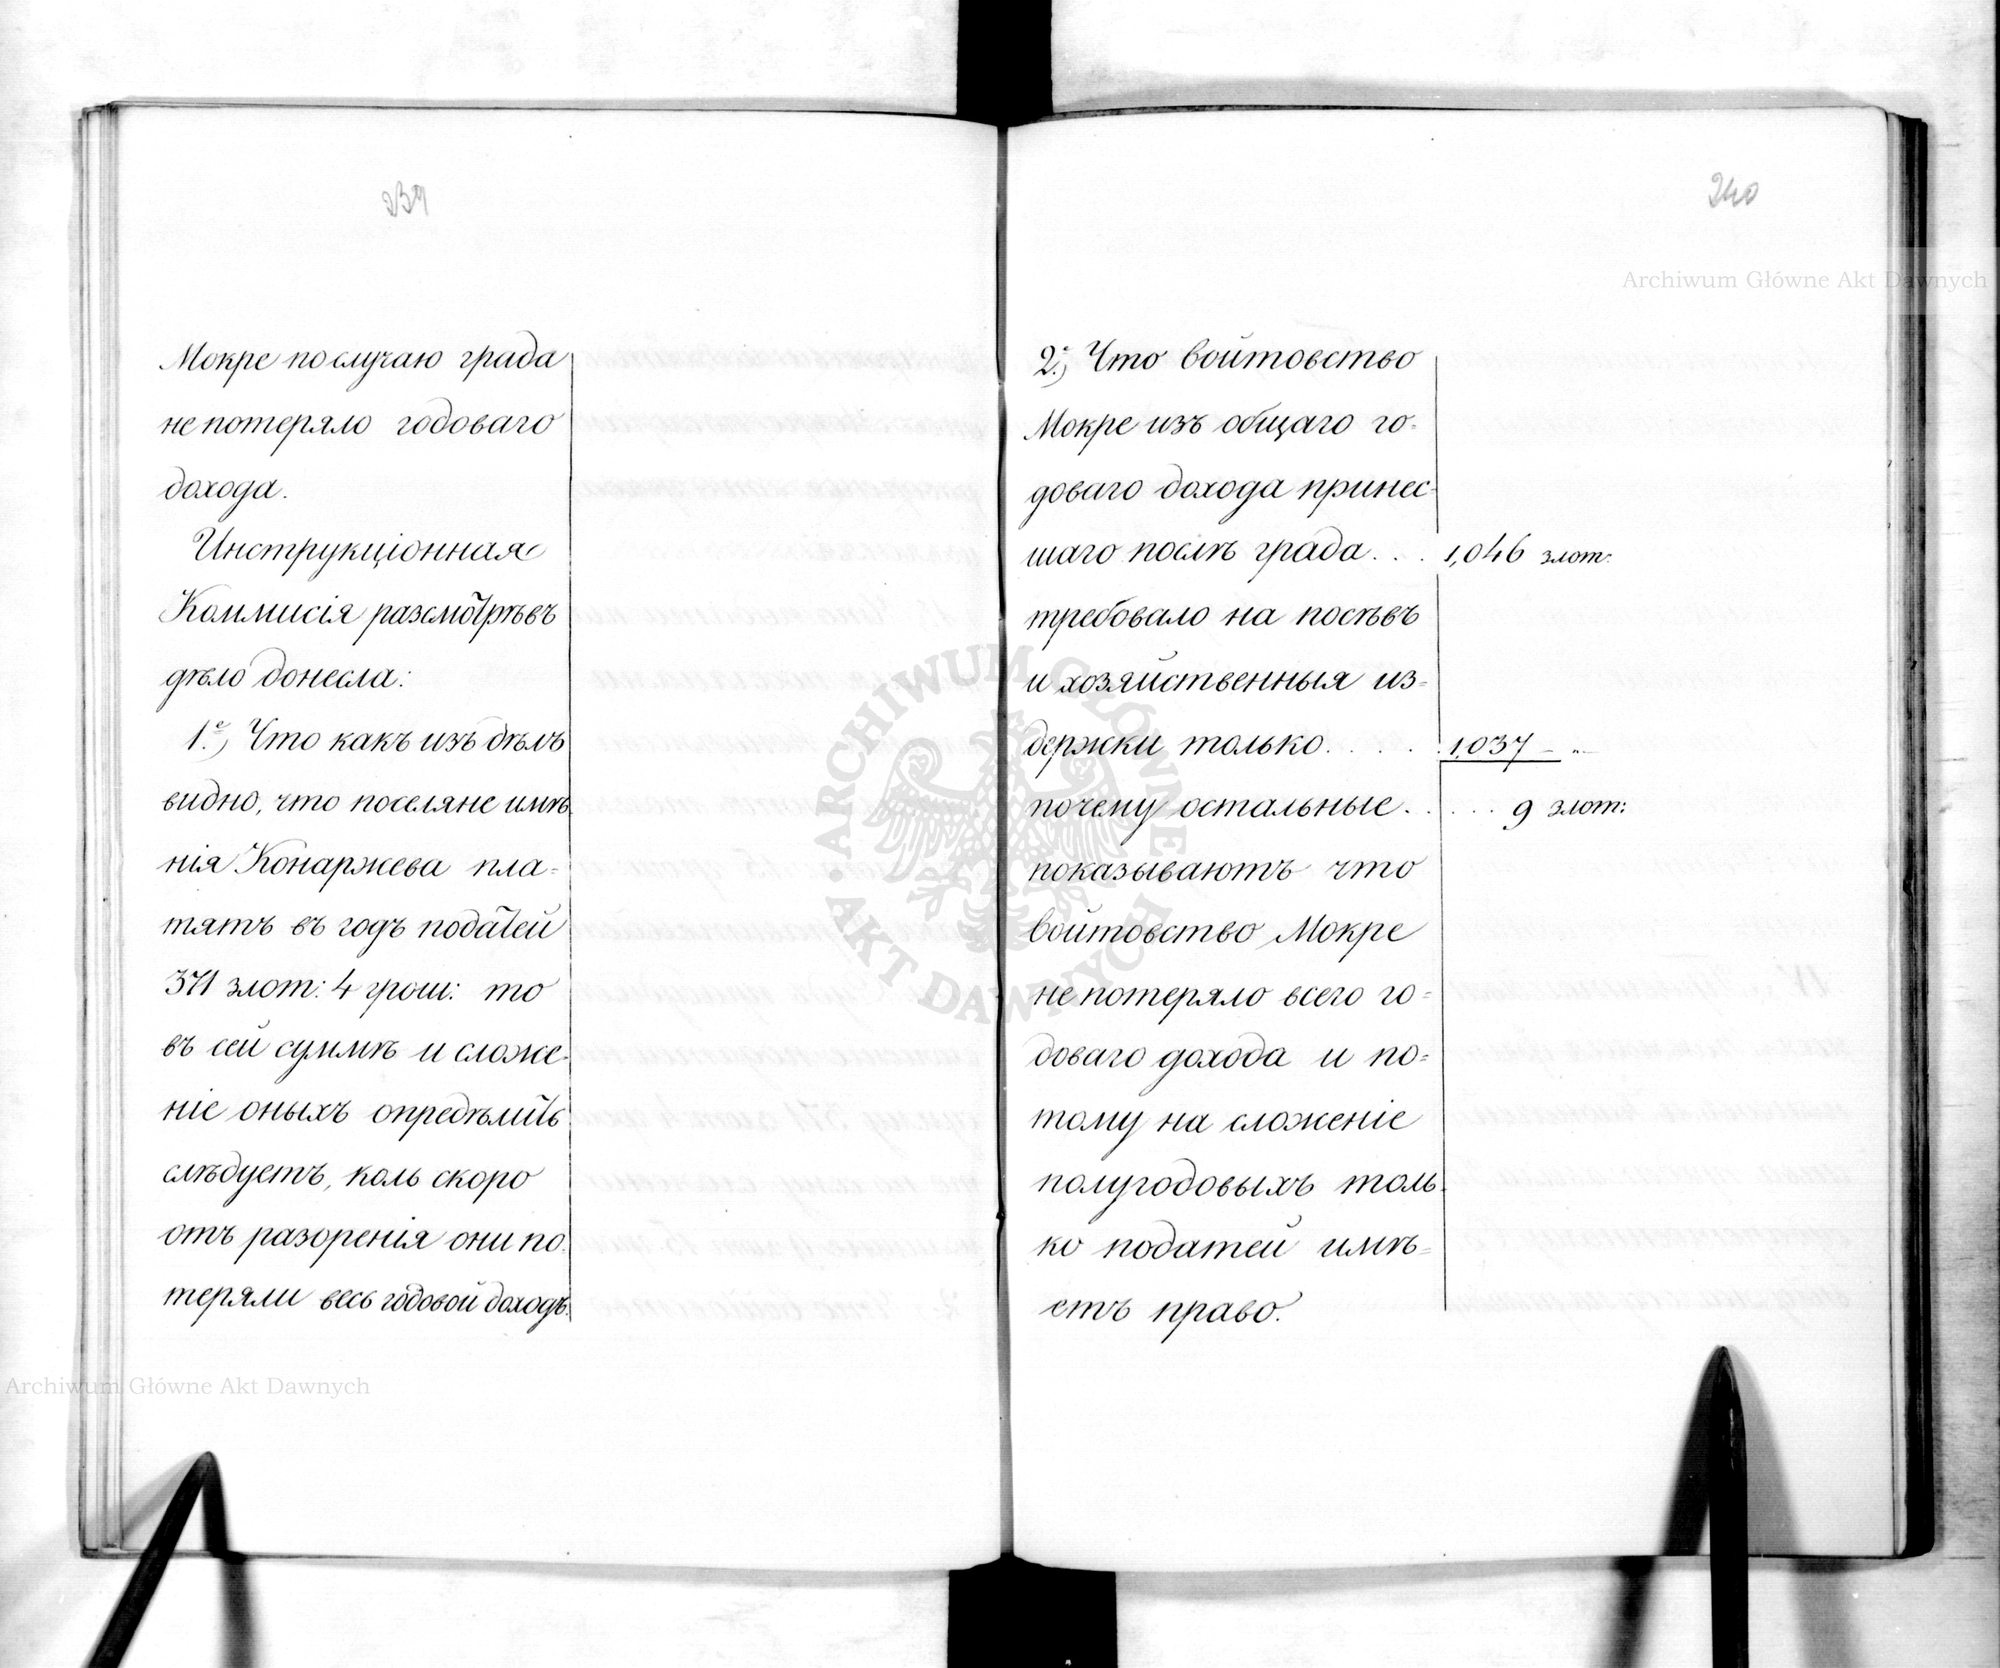 239
Мокре по случаю града
не потеряло годоваго
дохода.
Инструкціонная
Коммисія разсмотрѣвъ
дѣло донесла:
1.е) Что какъ изъ дѣлъ
видно, что поселяне имѣ-
нія Конаржева пла=
тятъ въ годъ податей
371 злот: 4 грош: то
въ сей суммѣ и сложе-
ніе оныхъ опредѣлить
слѣдуетъ, коль скоро
отъ разоренія они по-
теряли весь годовой доходъ.
240
2.е) Что войтовство
Мокре изъ общаго го-
доваго дохода принес-
шаго послѣ града . . . 1,046 злот:
требовало на посѣвъ
и хозяйственныя из=
держки только . . . . . 1,037 - "-
почему остальные . . . . . 9 злот:
показываютъ что
войтовство Мокре
не потеряло всего го=
доваго дохода и по=
тому на сложеніе
полугодовыхъ толь-
ко податей имѣ=
етъ право.
Archiwum Główne Akt Dawnych
ARCHIWUM GŁÓWNE AKT DAWNYCH
Archiwum Główne Akt Dawnych